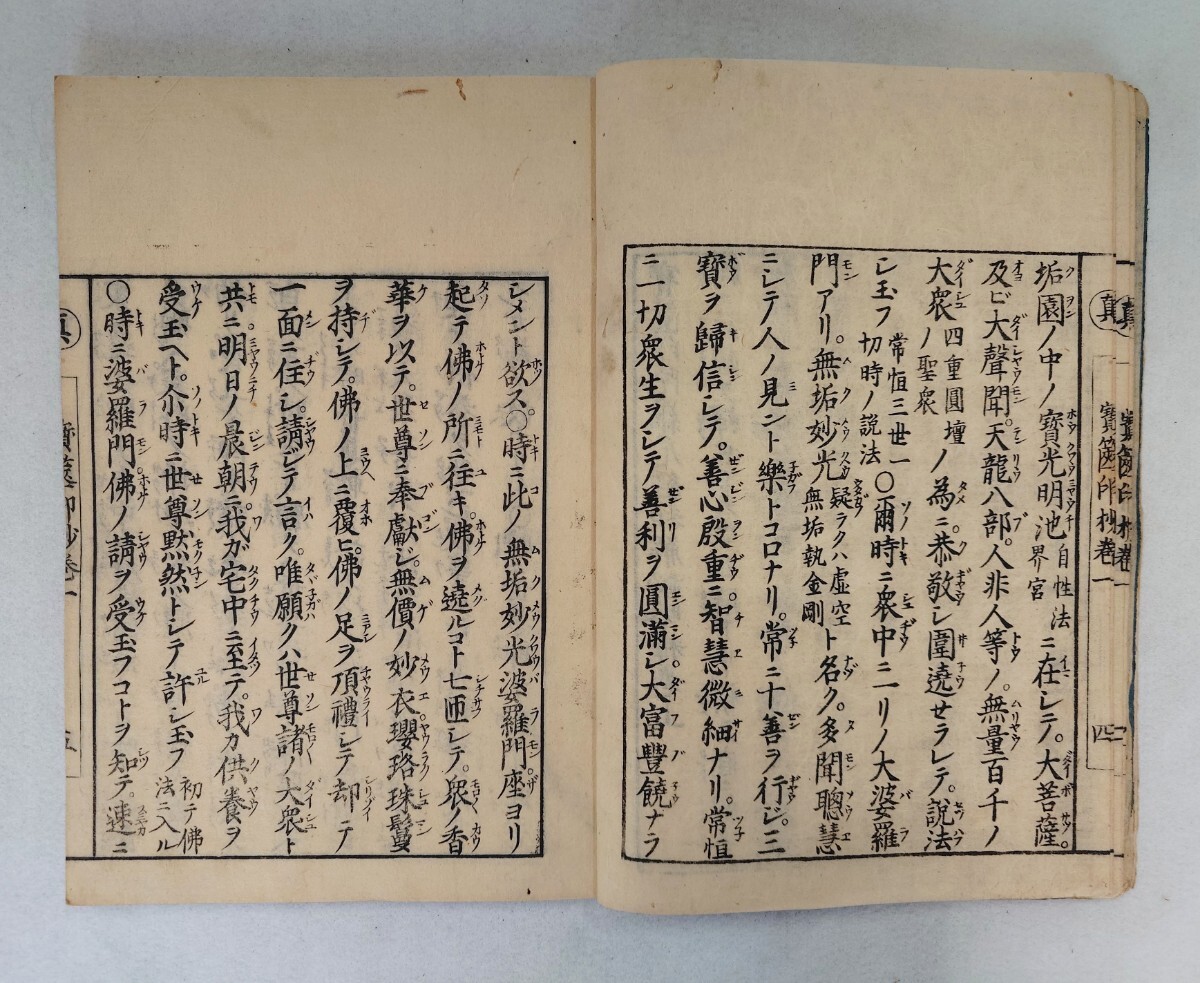 眞
寳篋印抄卷一
四
垢園ノ中ノ寳光明池自性法界宮ニ在シテ。大菩薩。
及ビ大聲聞。天龍八部。人非人等ノ。無量百千ノ
大衆四重圓壇ノ聖衆ノ為ニ。恭敬シ圍遶セラレテ。說法
シ玉フ常恒三世一切時ノ說法〇爾時ニ衆中ニ一リノ大婆羅
門アリ。無垢妙光疑ラクハ虚空無垢執金剛ト名ク。多聞聰慧
ニシテ人ノ見ント樂トコロナリ。常ニ十善ヲ行ジ。三
寳ヲ歸信シテ。善心殷重ニ智慧微細ナリ。常恒
ニ一切衆生ヲシテ善利ヲ圓滿シ。大富豐饒ナラ
シメント欲ス。〇時ニ此ノ無垢妙光婆羅門座ヨリ
起テ佛ノ所ニ往キ。佛ヲ遶ルコト七匝シテ。衆ノ香
華ヲ以テ。世尊ニ奉獻シ。無價ノ妙衣瓔珞珠鬘
ヲ持シテ。佛ノ上ニ覆ヒ。佛ノ足ヲ頂禮シテ却テ
一面ニ住シ。請シテ言ク。唯願クハ世尊諸ノ大衆ト
共ニ。明日ノ晨朝ニ。我ガ宅中ニ至テ。我カ供養ヲ
受玉ヘト。尒時ニ世尊默然トシテ許シ玉フ初テ佛法ニ入ル
〇時ニ婆羅門佛ノ請ヲ受玉フコトヲ知テ。速ニ